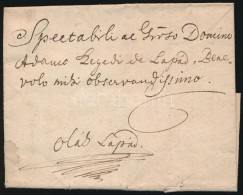 Spectabili ac Groso Domino
Adamo Szegedi de Lapád, Bene
volo mihi observandissimo.
Oláh Lapád.